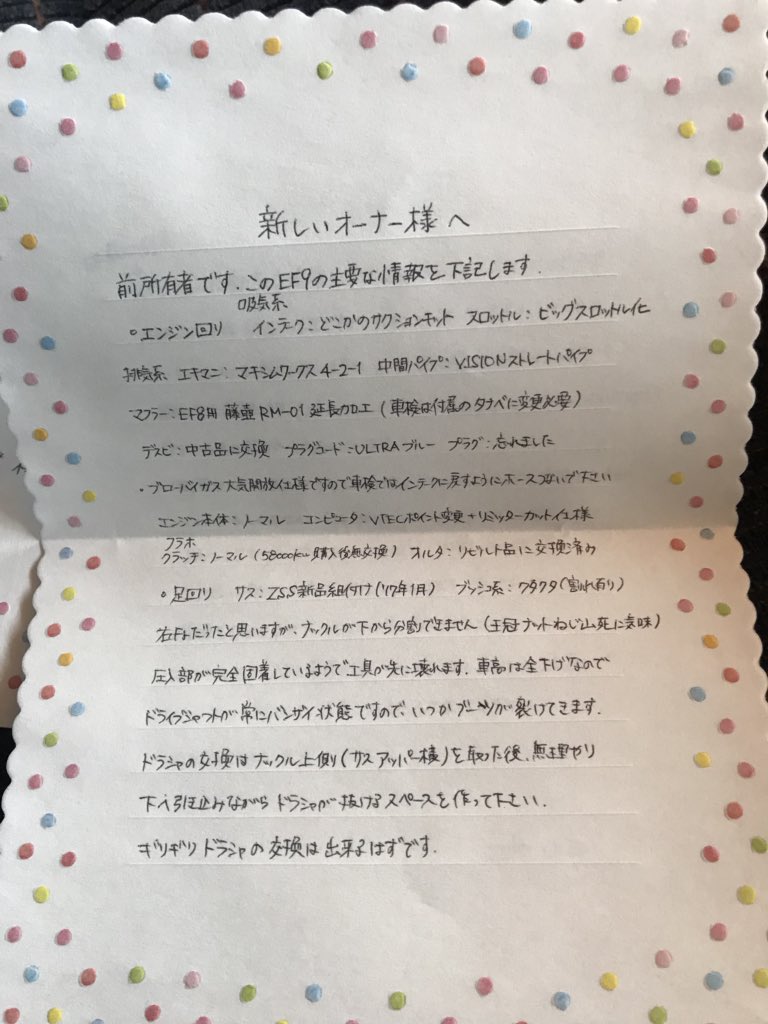 新しいオーナー様へ
前所有者です.このEF9の主要な情報を下記します.
吸気系
・エンジン回り インテーク:どこかのサクションキット スロットル:ビッグスロットル化
排気系 エキマニ:マキシムワークス4-2-1 中間パイプ:VISIONストレートパイプ
マフラー:EF8用 藤壺RM-01延長加工(車検は付属のタナベに変更必要)
デスビ:中古品に交換 プラグコード:ULTRAブルー プラグ:忘れました
・ブローバイガス大気開放仕様ですので車検ではインテークに戻すようにホースつないで下さい
エンジン本体:ノーマル コンピュータ:VTECポイント変更+リミッターカット仕様
フラホ
クラッチ:ノーマル(58000km購入後無交換) オルタ:リビルト品に交換済み
・足回り サス:ZSS新品組付け('17年1月) ブッシュ系:クタクタ(割れ有り)
右Frだったと思いますが、ナックルが下から分割できません(王冠ナットねじ山死に気味)
圧入部が完全固着しているようで工具が先に壊れます.車高は全下げなので
ドライブシャフトが常にバンザイ状態ですので、いつかブーツが裂けてきます.
ドラシャの交換はナックル上側(サスアッパー横)を取った後、無理やり
下へ引き込みながらドラシャが抜けるスペースを作って下さい.
ギリギリドラシャの交換は出来るはずです.